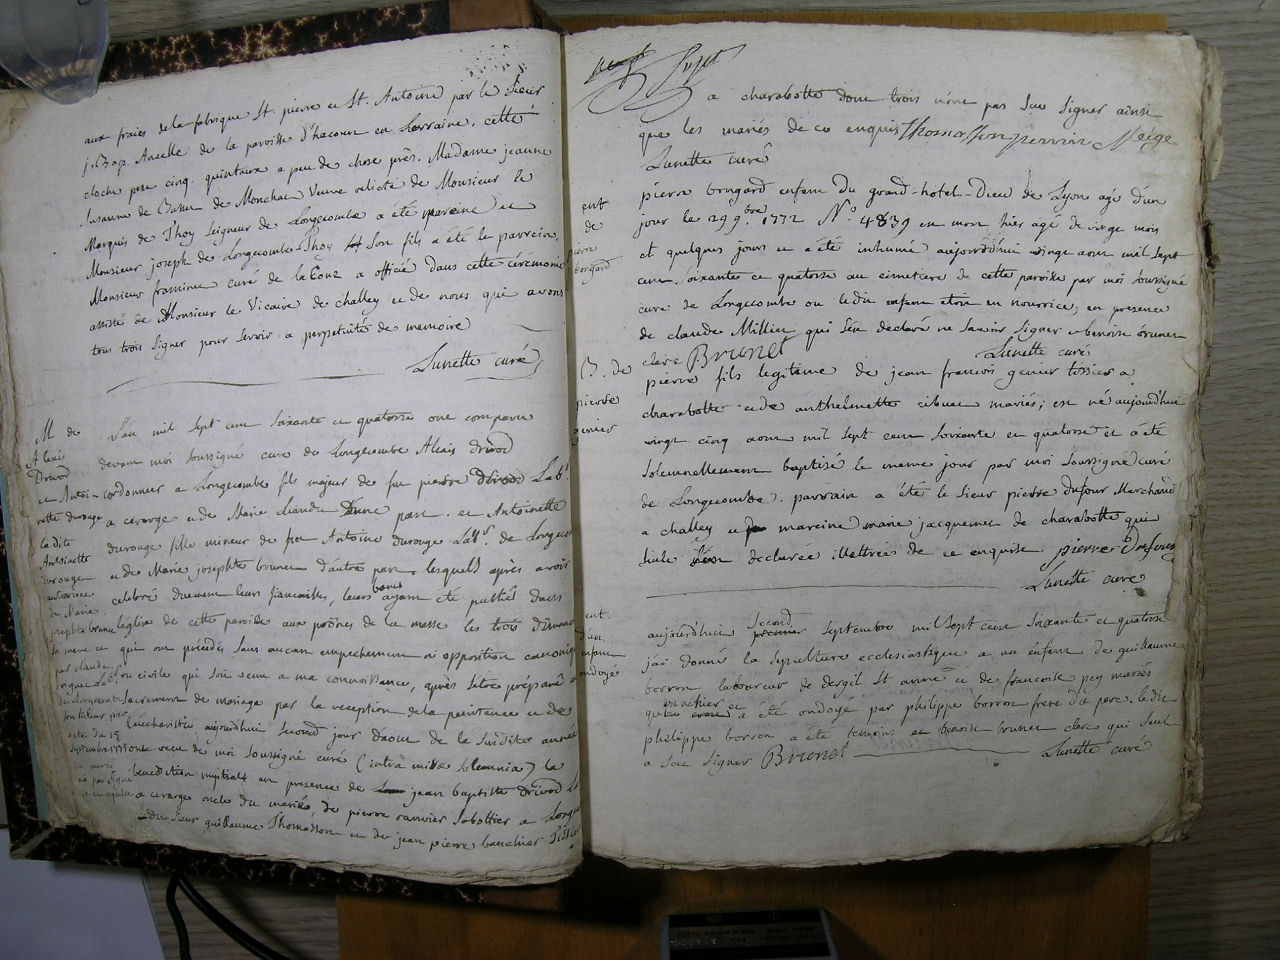 aux fraies de la fabrique St. pierre et St. Antoine par le Sieur
j. Bap. Ancelle de la paroisse d'hacourt en Lorraine. cette
cloche pese cinq quintaux a peu de chose près. Madame jeanne
Susanne de de Monchat Veuve relicte de Monsieur le
Marquis de Thoy Seigneur de Longecombe a été mareine et
Monsieur joseph de Longecombe Thoy Son fils a été le parrein.
Monsieur framinet curé de la Cour a officié dans cette céremonie
assisté de Monsieur le Vicaire de challey et de nous qui avons
tous trois signer pour servir a perpetuité de memoire
Lunette curé
M de
Alexis
Drivod
et Antoi-
nette durouge
la dite
Antoinette
durouge
autorisée
de Marie
josephte brunet
sa mere et
par claude
L'an mil sept cent soixante et quatorze ont comparu
devant moi soussigné curé de Longecombe Alexis drivod
cordonnier a Longecombe fils majeur de feu pierre drivod Lab.r
a cerarge et de Marie d'une part. et Antoinette
durouge fille mineur de feu Antoine durouge Lab.r de Longeco
et de Marie josephte brunet d'autre part, lesquels après avoir
celebré duement leurs fiancailles, leurs bans ayant été publiés dans
l'église de cette paroisse aux prônes de la messe les trois dimanc
qui ont précédés sans aucun empechement ni opposition canoniq
ou civile qui soit venu a ma connoissance, après s'être préparé a
sacrement de mariage par la reception de la penitence et de
l'eucharistie aujourdhui second jour daout de la susdite année
ont recu de moi soussigné curé (intra missæ solemnia) la
benediction nuptiale en presence de jean baptiste drivod
a cerarge oncle du marié, de pierre ranvier sabottier a Longe
du sieur guillaume Thomasson et de jean pierre bauchier
neuf Sujet
a charabotte dont trois n'ont pas sue signer ainsi
que les mariés de ce enquis Thomasson perrin Neige
Lunette curé
ent
de
pierre
brogard
pierre brogard enfant du grand-hotel-Dieu de Lyon agé d'un
jour le 29 9.bre 1772 N.o 4839 est mort hier agé de vingt mois
et quelques jours et a été inhumé aujourdhui vingt aout mil sept
cent soixante et quatorze au cimetiere de cette paroisse par moi soussigné
curé de Longecombe ou le dit enfant étoit en nourrice; en presence
de claude Millien qui s'est déclaré ne savoir signer et benoise brunet
clerc Brunet Lunette curé
B. de
pierre
genier
pierre fils legitime de jean francois genier tissier a
charabotte et de anthelmette mariés; est né aujourdhui
vingt cinq aout mil sept cent soixante et quatorze et a été
solemnellement baptisé le meme jour par moi soussigné curé
de Longecombe. parrain a été le sieur pierre Dufour Marchand
a challey et mareine marie jacquemet de charabotte qui
s'est declarée illettrée de ce enquise pierre Dufour
Lunette curé
ent.
d'un
enfant
ondoyé
aujourdhui second septembre mil sept cent soixante et quatorze
j'ai donné la sepulture ecclesiastique a un enfant de guillaume
borron laboureur de St anne et de francoise pey mariés
a été ondoyé par philippe borron frere du pere. le dit
philippe borron a été temoins et benoise brunet clerc qui seul
a sue signer Brunet Lunette curé